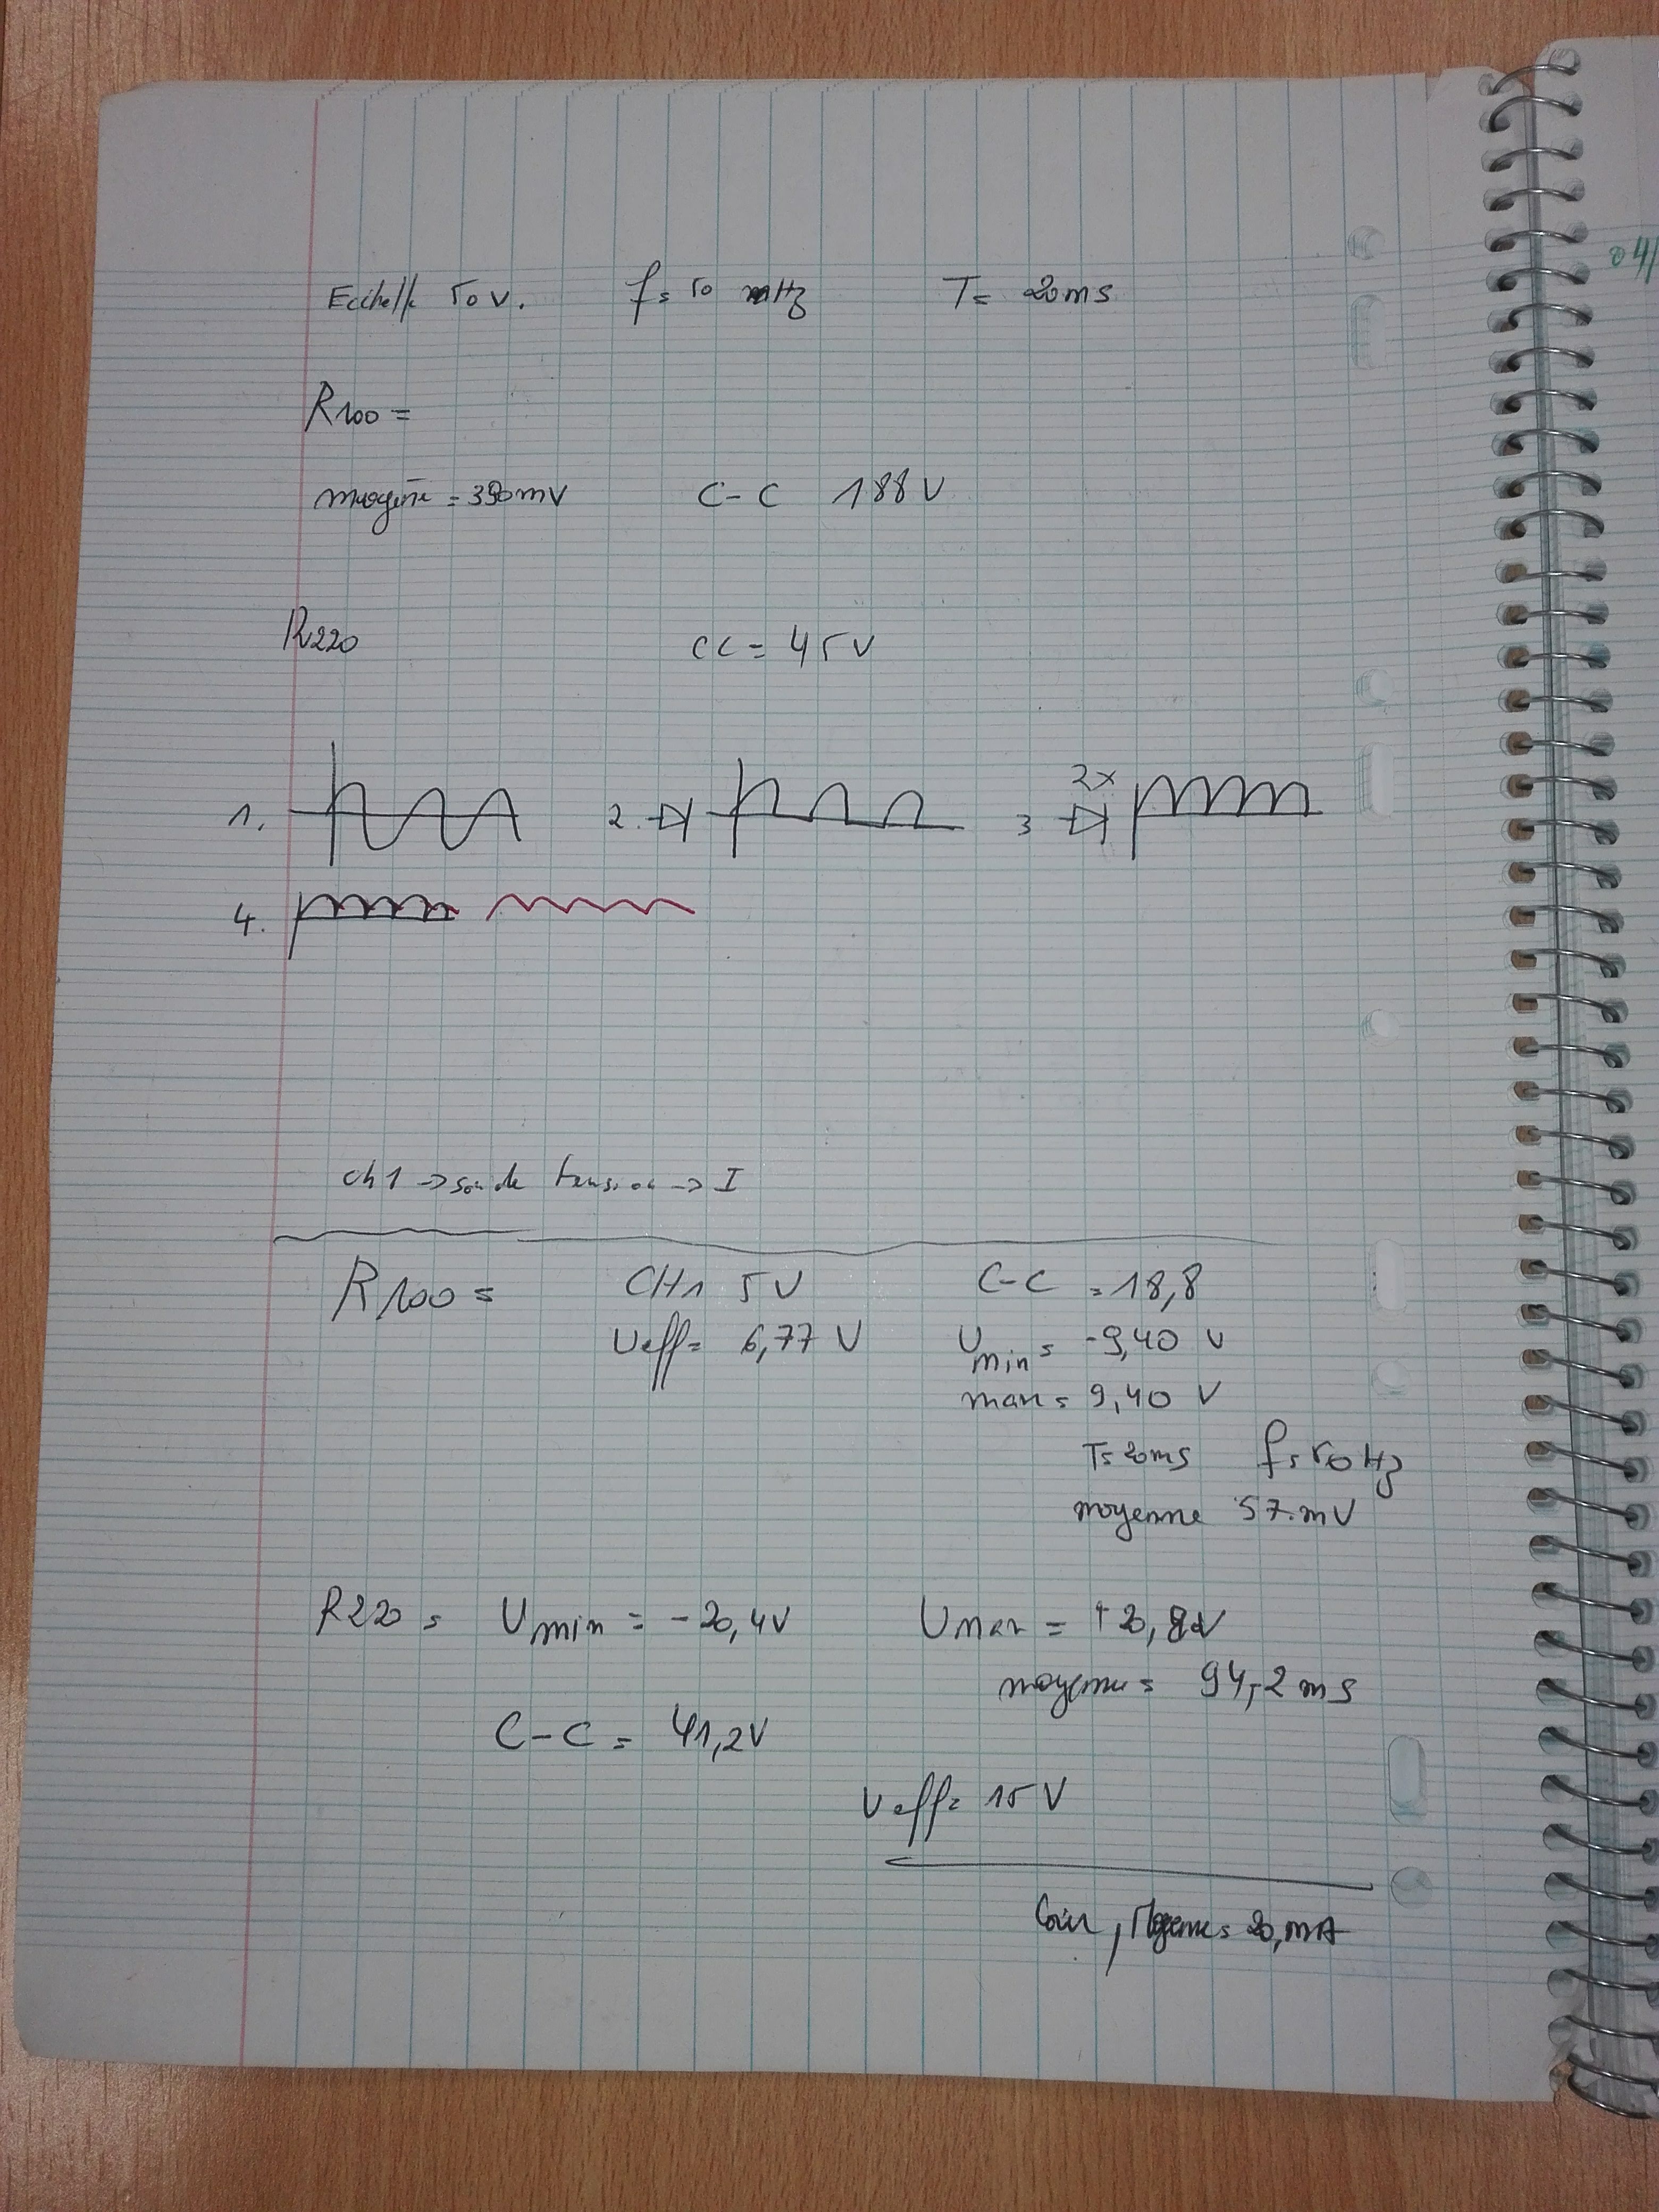 Ecchelle 50 V. f = 50 Hz T = 20ms
R100 =
= 390mV C-C 188 V
R220 CC = 45V
1. 2. 3 2x
4.
ch1 -> sonde tension -> I
R100 = CH1 5V C-C = 18,8
Ueff = 6,77 V Umin = -9,40 V
max = 9,40 V
T = 20ms f = 50 Hz
moyenne 57.mV
R220 = Umin = -20,4V Umax = +20,8V
moyenne = 94,2 ms
C-C = 41,2V
Ueff = 15 V
= 20, mA
04/